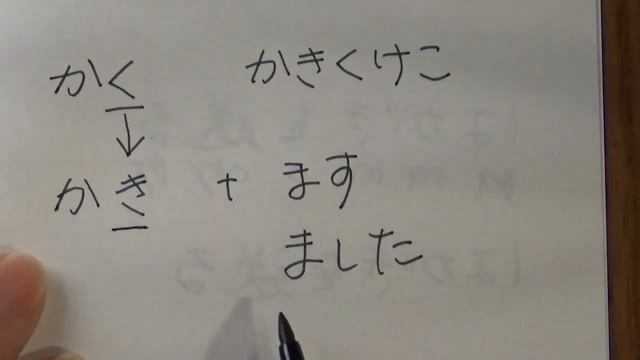 かく かきくけこ
↓
かき + ます
ました